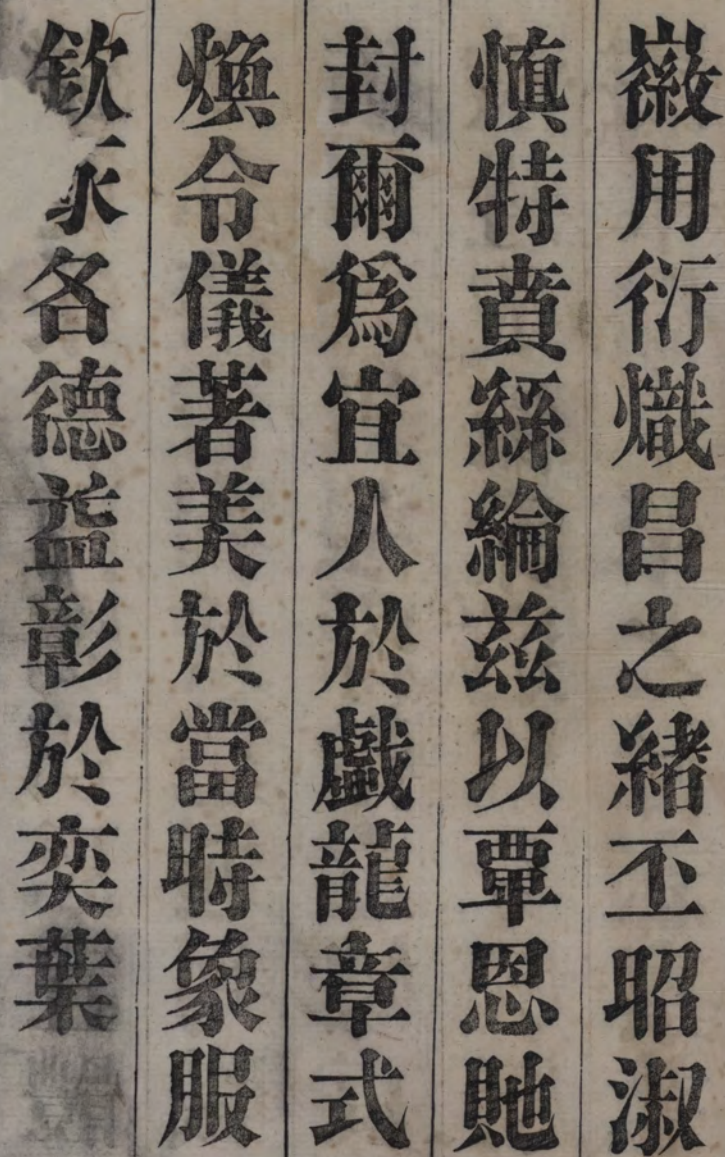 徽用衍熾昌之緒丕昭淑
慎特賁絲綸茲以覃恩貤
封爾爲宜人於戲龍章式
煥令儀著美於當時象服
欽承名德益彰於奕葉